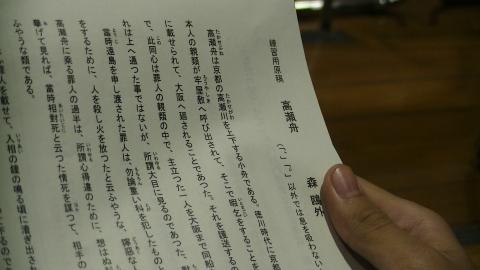 練習用原稿
高瀬舟
森 鷗外
(「、」「。」以外では息を吸わない
高瀬舟は京都の高瀬川を上下する小舟である。徳川時代に京都
本人の親類が牢屋敷へ呼び出されて、そこで暇乞をすることを
に載せられて、大阪へ廻されることであつた。それを護送するの
で、此同心は罪人の親類の中で、主立つた一人を大阪まで同船
れは上へ通つた事ではないが、所謂大目に見るのであつた、
當時遠島を申し渡された罪人は、勿論重い科を犯したものと
をするために、人を殺し火を放つたと云ふやうな、獰惡な
高瀬舟に乘る罪人の過半は、所謂心得違のために、想はぬ
擧げて見れば、當時相對死と云つた情死を謀つて、相手の
ふやうな類である。
罪人を載せて、入相の鐘の鳴る頃に漕ぎ出さ